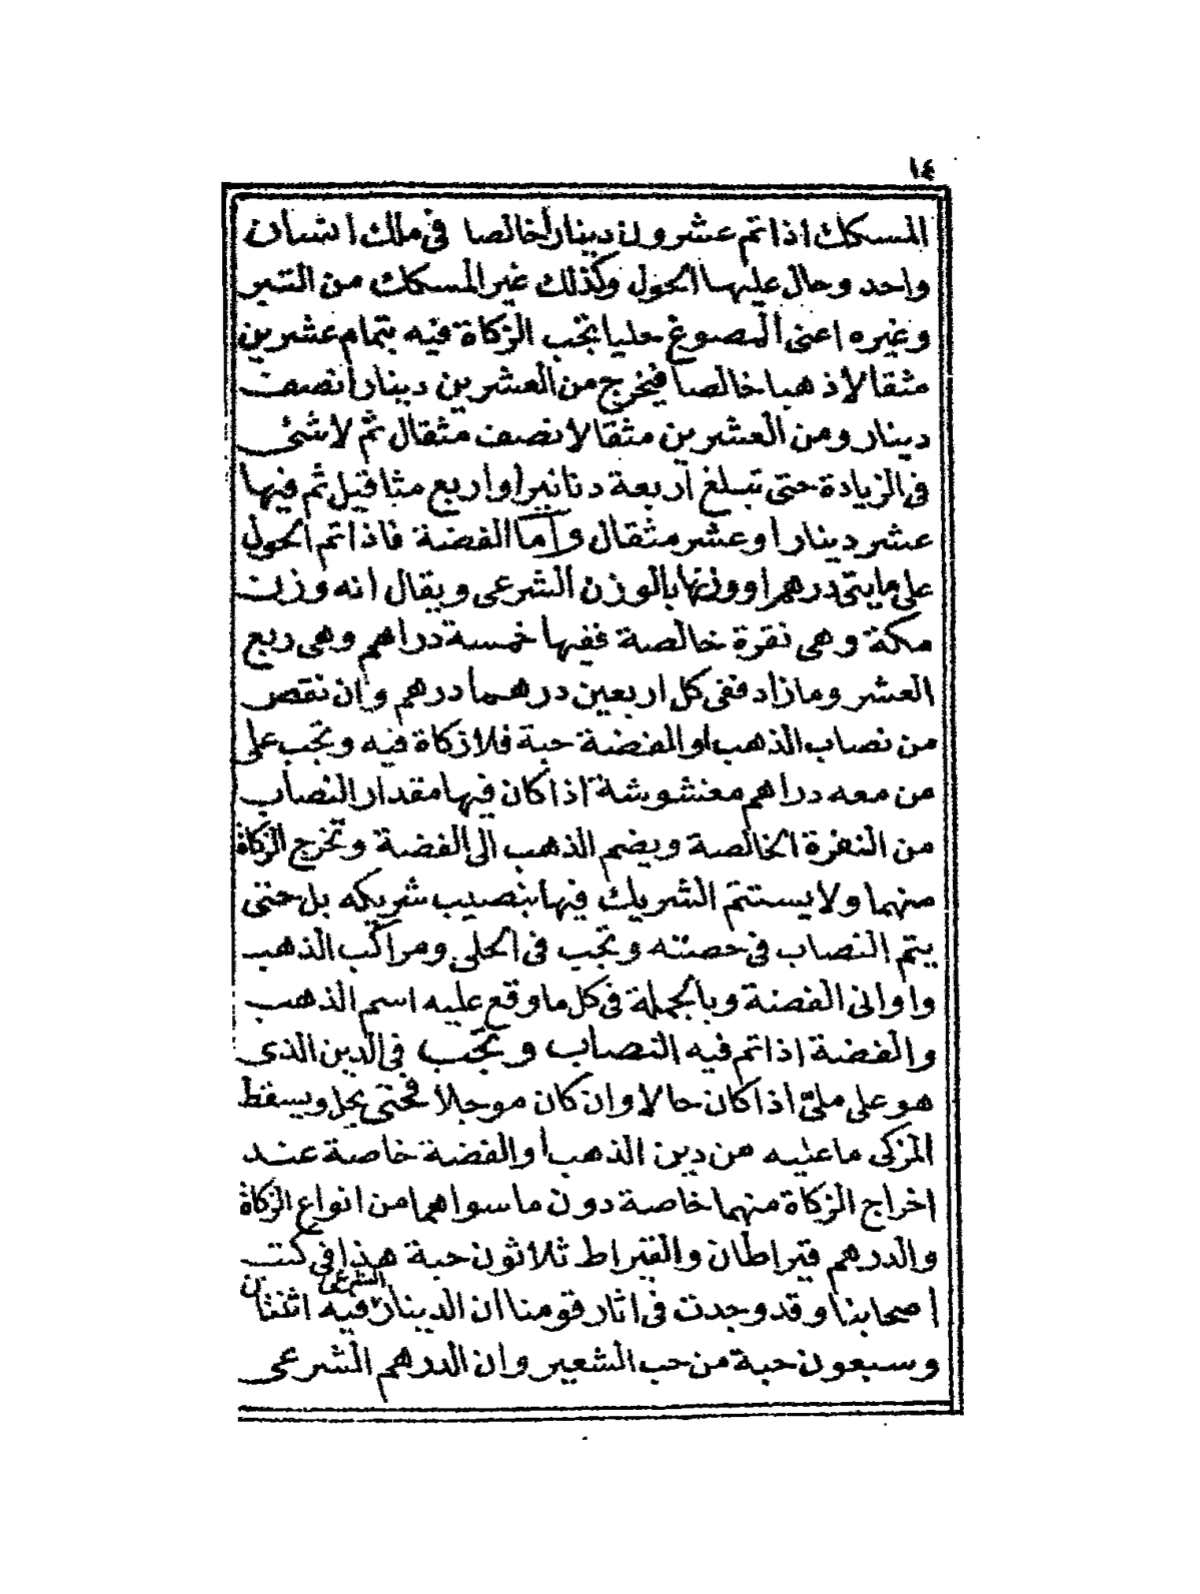 ١٤
المسكك اذا تم عشرون دينارا خالصا في ملك انسان
واحد وحال عليها الحول وكذلك غير المسكك من التبر
وغيره اعنى المصوغ حليا تجب الزكاة فيه بتمام عشرين
مثقالا ذهبا خالصا فيخرج من العشرين دينارا نصف
دينار ومن العشرين مثقالا نصف مثقال ثم لا شئ
في الزيادة حتى تبلغ اربعة دنانيرا واربع مثاقيل ثم فيها
عشر دينار او عشر مثقال واما الفضة فاذا تم الحول
على مايتى درهم اووزنها بالوزن الشرعى ويقال انه وزن
مكة وهى نقرة خالصة ففيها خمسة دراهم وهى ربع
العشر وما زاد ففى كل اربعين درهما درهم وان نقص
من نصاب الذهب او الفضة حبة فلا زكاة فيه وتجب على
من معه دراهم مغشوشة اذا كان فيها مقدار النصاب
من النقرة الخالصة ويضم الذهب الى الفضة وتخرج الزكاة
منهما ولا يستتم الشريك فيها بنصيب شريكه بل حتى
يتم النصاب في حصته وتجب في الحلى ومراكب الذهب
واوانى الفضة وبالجملة في كل ما وقع عليه اسم الذهب
والفضة اذا تم فيه النصاب وتجب في الدين الذى
هو على ملئ اذا كان حالا وان كان موجلا فحتى يحل ويسقط
المزكى ما عليه من دين الذهب او الفضة خاصة عند
اخراج الزكاة منهما خاصة دون ما سواهما من انواع الزكاة
والدرهم قيراطان والقيراط ثلاثون حبة هذا في كتب
اصحابنا وقد وجدت في اثار قومنا ان الدينار الشرعى فيه اثنتان
وسبعون حبة من حب الشعير وان الدرهم الشرعى